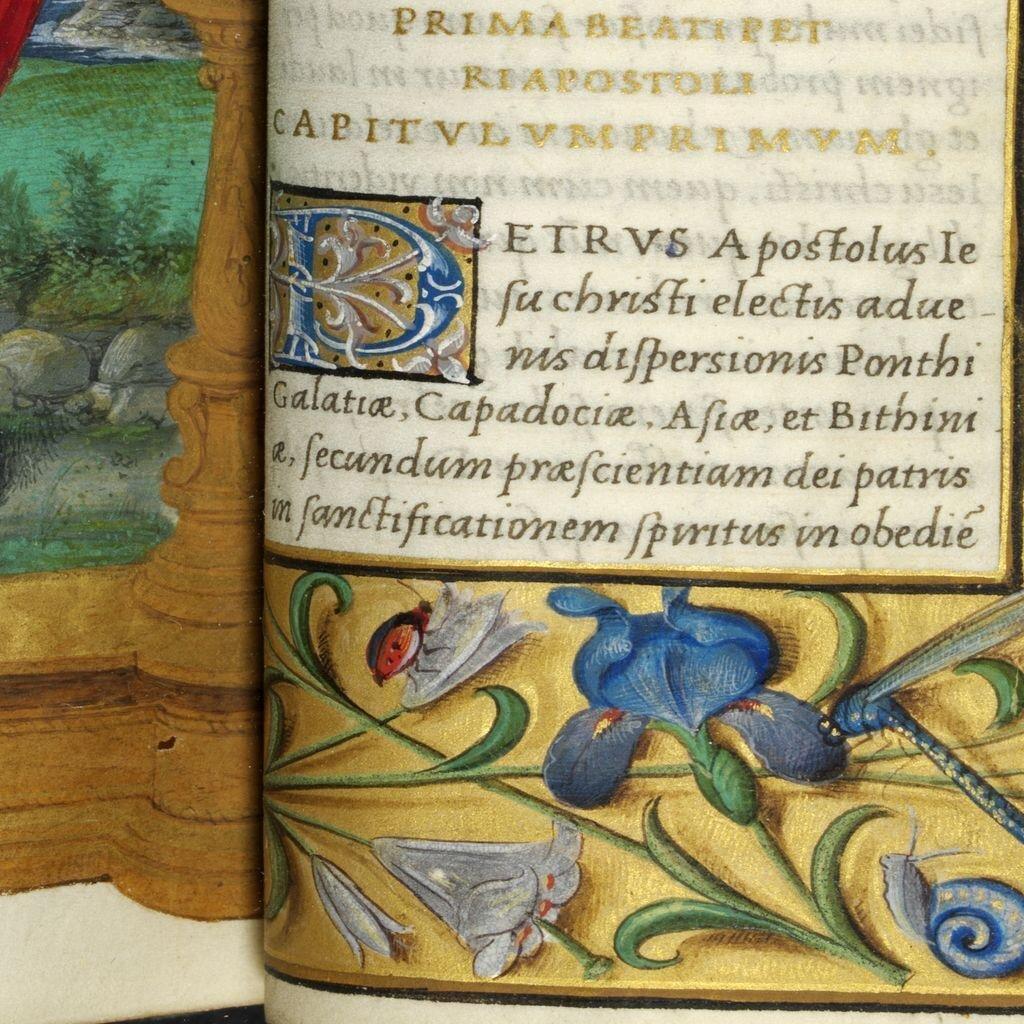 PRIMA BEATI PET
RI APOSTOLI
CAPITVLVM PRIMVM.
PETRVS Apostolus Ie
su christi electis adue-
nis dispersionis Ponthi
Galatiæ, Capadociæ, Asiæ, et Bithini
æ, secundum præscientiam dei patris
in sanctificationem spiritus in obediē